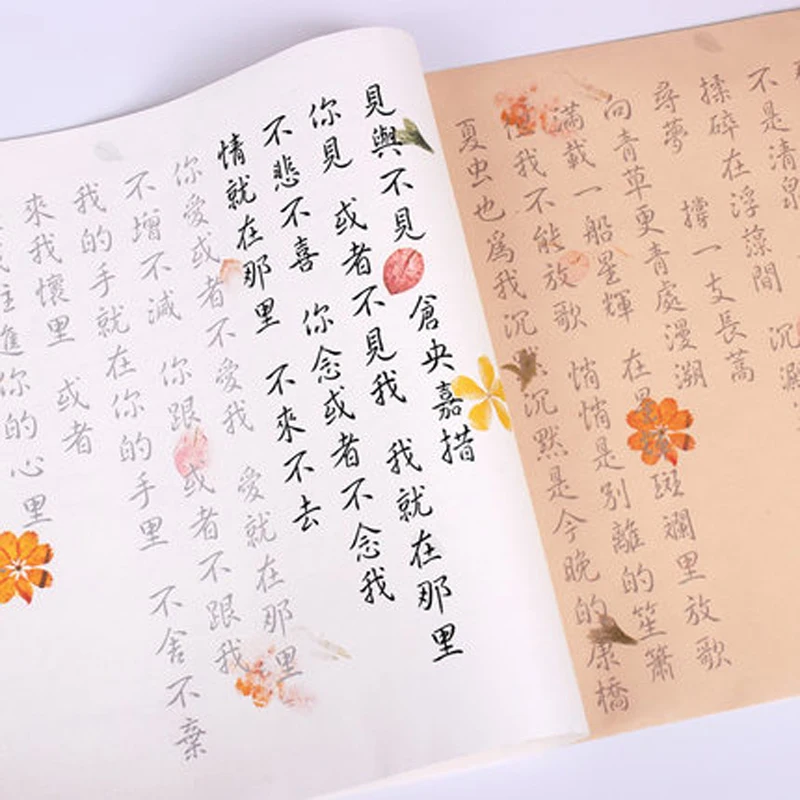 不是清泉
揉碎在浮藻間 沉澱
尋夢 撐一支長蒿
向青草更青處漫溯
滿載一船星輝 在星輝斑斕里放歌
但我不能放歌 悄悄是別離的笙簫
夏虫也為我沉默 沉默是今晚的康橋
見與不見 倉央嘉措
你見 或者不見我 我就在那里
不悲不喜 你念或者不念我
情就在那里 不來不去
你愛或者不愛我 愛就在那里
不增不減 你跟 或者不跟我
我的手就在你的手里 不舍不棄
來我懷里 或者
住進你的心里